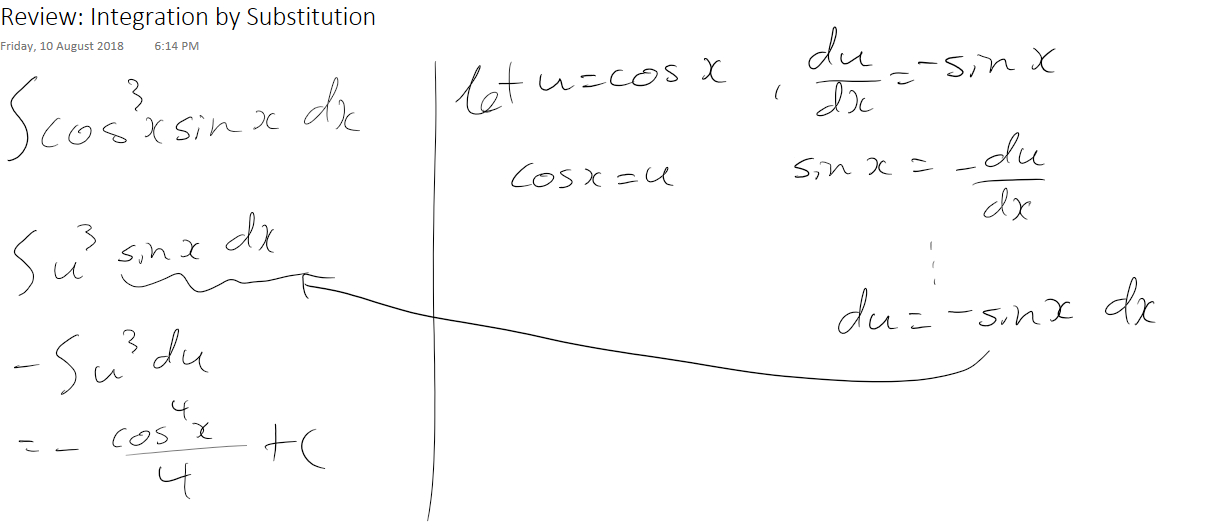 Review: Integration by Substitution
Friday, 10 August 2018 6:14 PM
∫cos³x sin x dx
∫u³ sin x dx
-∫u³ du
= - cos⁴x / 4 + C
let u = cos x , du/dx = -sin x
cos x = u sin x = -du/dx
du = -sin x dx